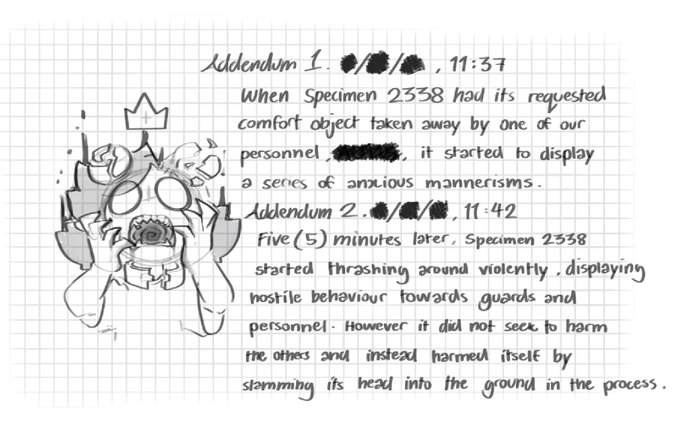 Addendum 1. / / , 11:37
When Specimen 2338 had its requested
comfort object taken away by one of our
personnel, , it started to display
a series of anxious mannerisms.
Addendum 2. / / , 11:42
Five (5) minutes later, Specimen 2338
started thrashing around violently, displaying
hostile behaviour towards guards and
personnel. However it did not seek to harm
the others and instead harmed itself by
slamming its head into the ground in the process.